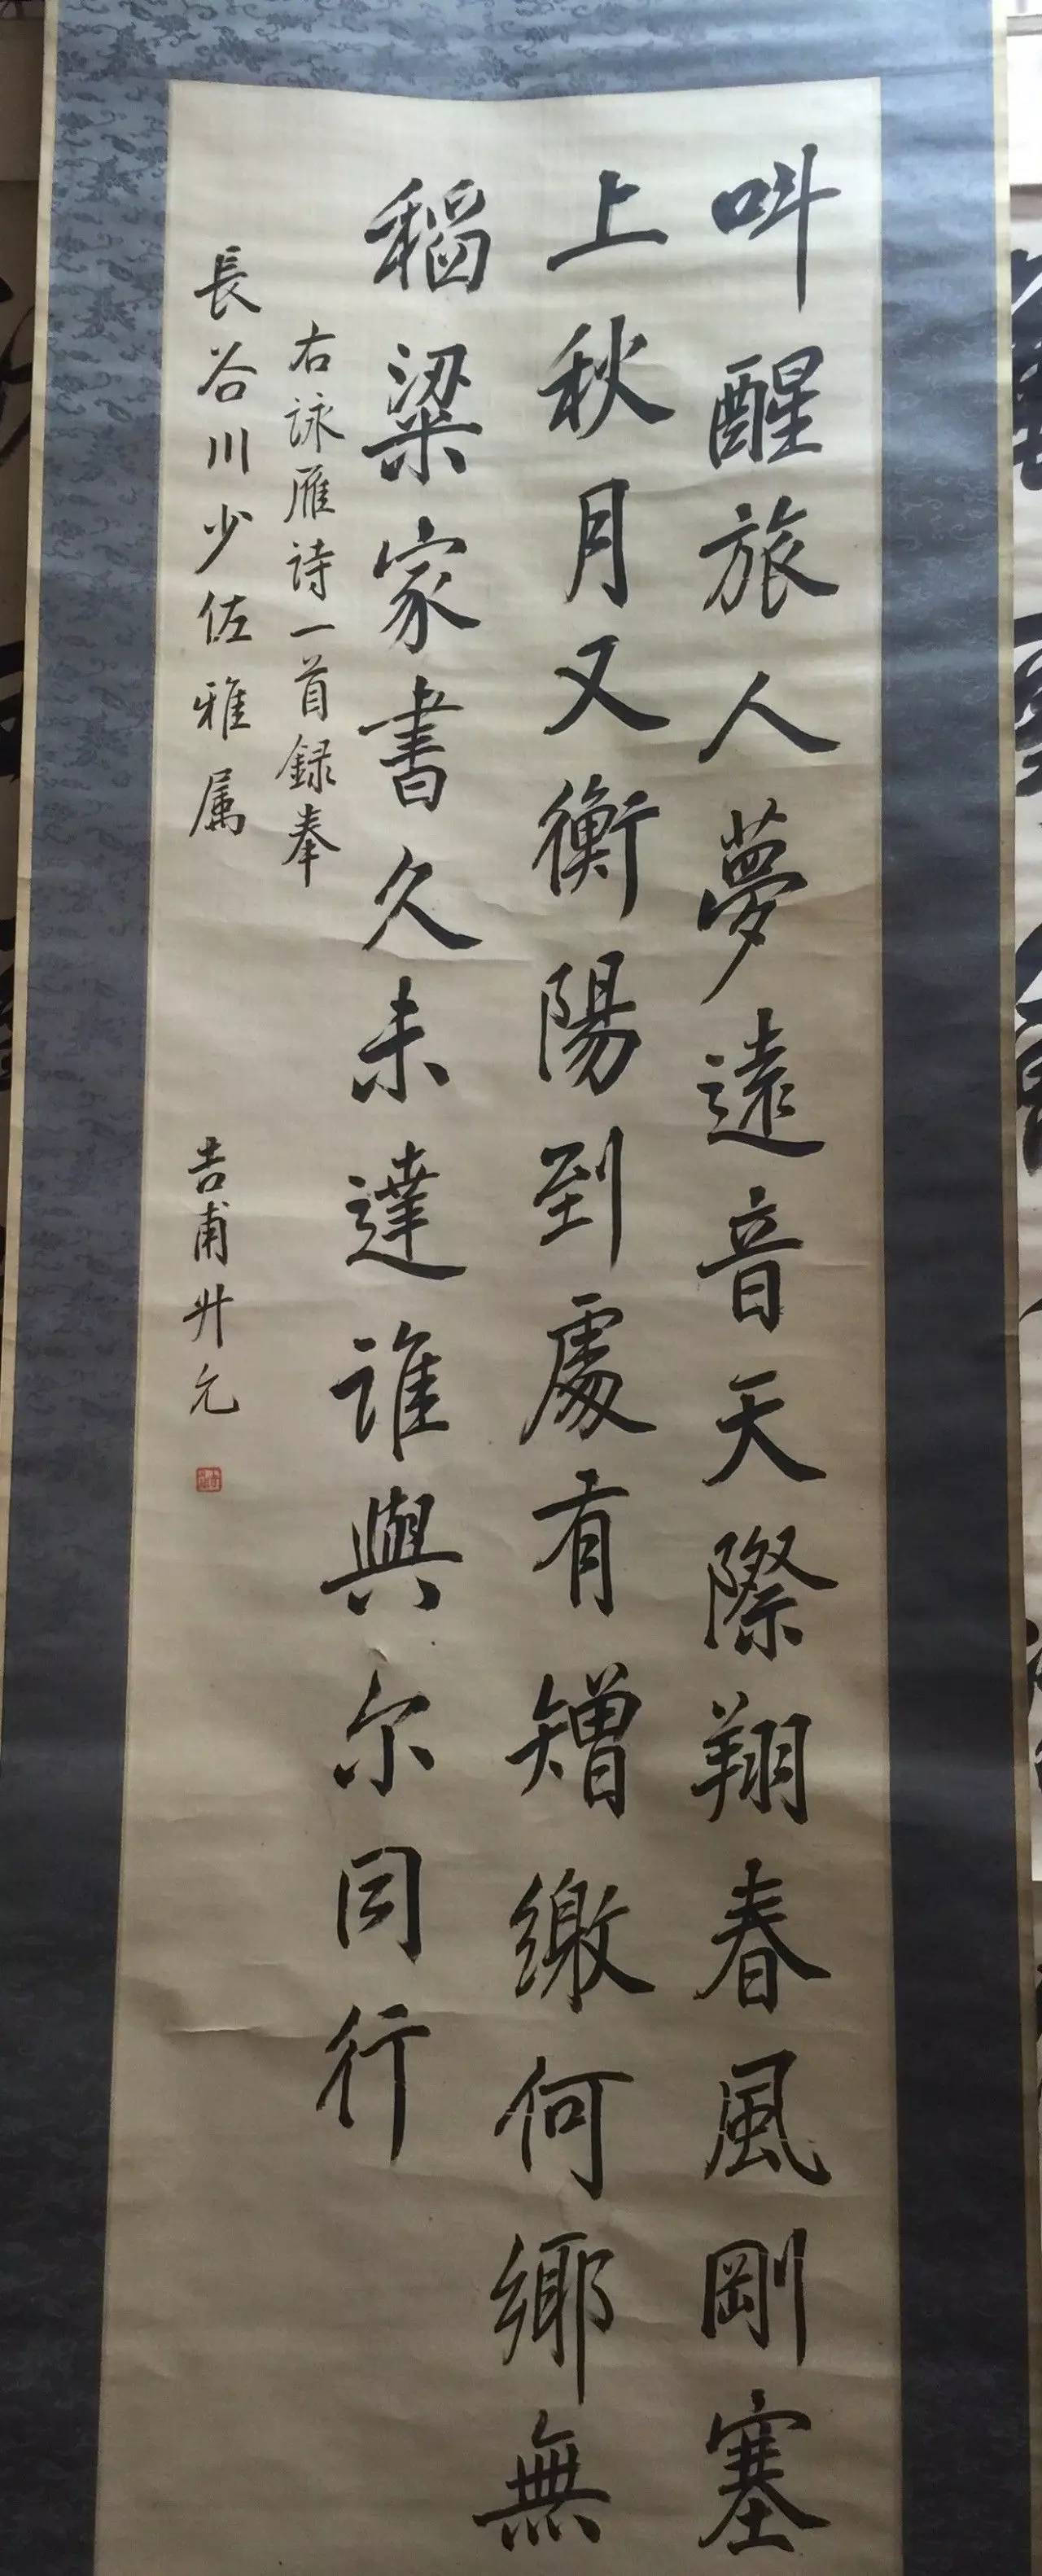 叫醒旅人夢遠音天際翔春風剛塞
上秋月又衡陽到處有矰繳何鄉無
稻粱家書久未達誰與尔同行
右詠雁詩一首録奉
長谷川少佐雅属
吉甫升允